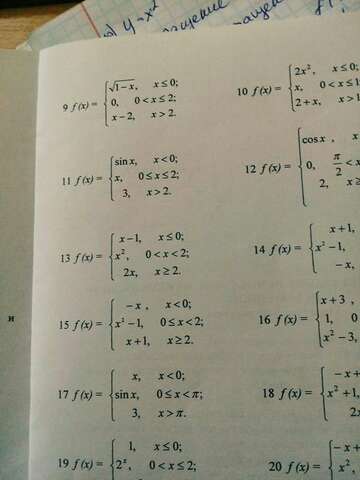 y = x²
9 f(x) = { √1−x, x ≤ 0; 0, 0 < x ≤ 2; x − 2, x > 2.
10 f(x) = { 2x², x ≤ 0; x, 0 < x ≤ 1 2 + x, x > 1
11 f(x) = { sin x, x < 0; x, 0 ≤ x ≤ 2; 3, x > 2.
12 f(x) = { cos x, x 0, π/2 < x 2, x ≥
13 f(x) = { x − 1, x ≤ 0; x², 0 < x < 2; 2x, x ≥ 2.
14 f(x) = { x + 1, x² − 1, −x,
15 f(x) = { −x, x < 0; x² − 1, 0 ≤ x < 2; x + 1, x ≥ 2.
16 f(x) = { x + 3, 1, 0 x² − 3,
и
17 f(x) = { x, x < 0; sin x, 0 ≤ x < π; 3, x > π.
18 f(x) = { −x + x² + 1, 2x
19 f(x) = { 1, x ≤ 0; 2ˣ, 0 < x ≤ 2;
20 f(x) = { −x + x²,